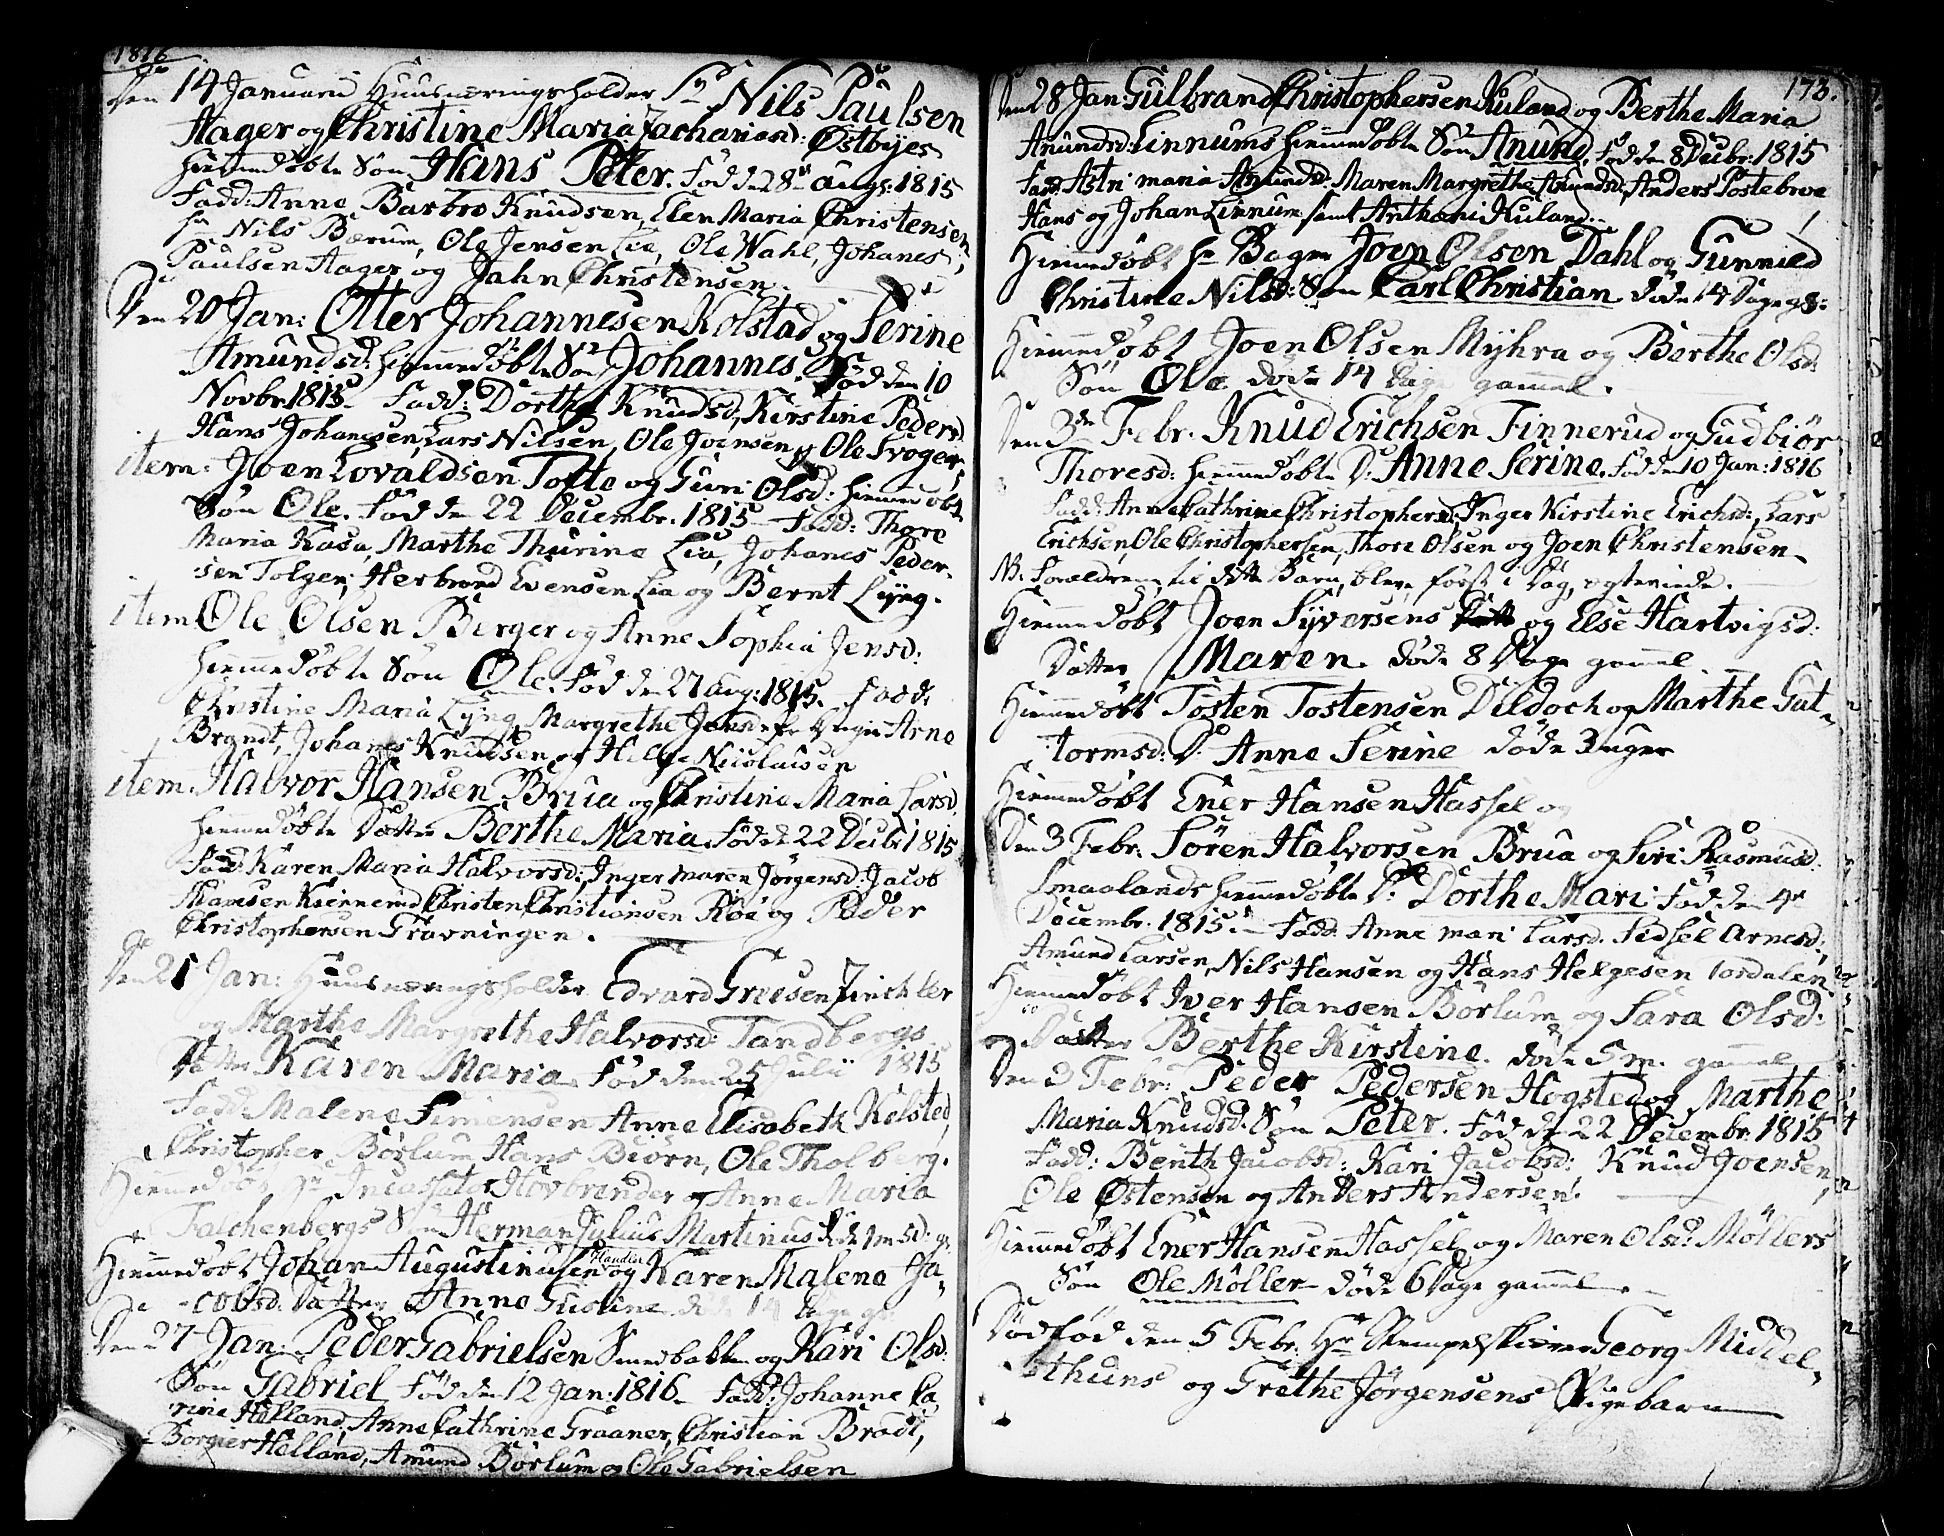 1816
Den 14 Januarii Huusnæringsholder Nils Paulsen
Hager og Christine Maria Zachariasd: Østbyes
hiemmedøbte Søn Hans Peter. Fød den 28 augs: 1815
Fadd: Anne Barbro Knudsen, Elen Maria Christensen
Hr Nils Bærum, Ole Jensen Lia, Ole Wahl, Johanes
Paulsen Hager, og Jahn Christensen.
Den 20 Jan: Otter Johannesen Kolstad og Serine
Amundsd: hiemmedøbte Søn Johannes. Fød den 10
Novbr. 1815 Fadd: Dorthe Knudsd, Kirstine Pedersd
Hans Johannesen, Lars Nilsen, Ole Joensen, Ole Svoger
item: Joen Lovaldsen Tofte og Guri Olsd: hiemmedøbte
Søn Ole. Fød den 22 Decembr. 1815 Fadd: Thore
Maria Kasa, Marthe Thurine Lia, Johanes Peder-
sen Tolgen, Herbrand Evensen Lia og Bernt Lyng.
item Ole Olsen Berger og Anne Sophia Jensd:
hiemmedøbte Søn Ole. Fød den 27 aug: 1815. Fadd:
Christine Maria Lyng, Margrethe Jensd Arne
Brandt, Johanes Knudsen og Helge Nicolaisen
item. Halvor Hansen Brua og Christine Maria Larsd
hiemmedøbte Datter Berthe Maria. Fød d 22 Decbr 1815
Fadd Karen Maria Halvorsd: Inger maren Jørgensd: Jacob
Hansen Christen Christiansen Røe og Peder
Christophersen Gravningen.
Den 21 Jan: Huusnæringsholder Edvard Zinckler
og Marthe Margrethe Halvorsd: Tandbergs
Datter Karen Maria Fød den 25 Julii 1815
Fadd Malene Simensen Anne Elisabeth Kolsted
Christopher Børlum Hans Biørn, Ole Tholberg.
Hiemmedøbt Hr Hovbrender og Anne Maria
Falchenbergs Søn Herman Julius Martinus
Hiemmedøbt Johan Augustinusen Haudin og Karen Malene Ja-
cobsd: Datter Anne Gustine døde 14 Dage gl:
Den 27 Jan: Peder Gabrielsen Smedbakken og Kari Olsd:
Søn Gabriel Fød den 12 Jan: 1816 Fadd: Johanne Ca
rine Halland, Anne Cathrine Graaner, Christian Bradt,
Borgier Helland, Amund Børlum og Ole Gabrielsen
173.
Den 28 Jan Gulbrand Christophersen Ruland og Berthe Maria
Anundsd: Linnums hiemmedøbte Søn Anund, Fød den 8 Decbr: 1815
Fadd. Astri maria Anundsd. Maren Margrethe Anundsd, Anders Postebroe
Hans og Johan Linnum samt Anthoni Ruland.
Hiemmedøbt Hr Joen Olsen Dahl og Gunnild
Christine Nilsd: Søn Carl Christian døde 14 Dage gl:
Hiemmedøbt Joen Olsen Myhra og Berthe Olsd:
Søn Ole døde 14 Dage gammel.
Den 3de Febr. Knud Erichsen Finnerud og Gudbiør
Thoresd: hiemmedøbte D: Anne Serine. Fød den 10 Jan: 1816
Fadd: Anne Cathrine Christophersd, Inger Kirstine Erichsd:, Lars
Erichsen, Ole Christophersen, Thore Olsen og Joen Christensen
NB. Forældrene til dette Barn, bleve først i Dag, egteviede.
Hiemmedøbt Joen Syversens og Else Hartvigsd:
Datter Maren. døde 8 Dage gammel
Hiemmedøbt Tosten Tostensen Dildoch og Marthe Gut-
tormsd: D: Anne Serine døde 3 uger
Hiemmedøbt Ener Hansen Hassel og
Den 3 Febr: Søren Halvorsen Brua og Siri Rasmusd:
Smaalands hiemmedøbte D: Dorthe Mari Fød den 4de
Decembr. 1815. Fadd. Anne mari Larsd. Sidsel Arnesd:
Amund Larsen, Nils Hansen og Hans Helgesen Jordalen.
Hiemmedøbt Iver Hansen Børlum og Sara Olsd:
Datter Berthe Kirstine. døde 5 m. gammel
Den 3 Febr: Peder Pedersen Hogsted og Marthe
Maria Knudsd. Søn Peter. Fød den 22 Decembr. 1815
Fadd: Benth Jacobsd: Kari Jacobsd: Knud Joensen,
Ole Østensen og Anders Andersen.
Hiemmedøbt Ener Hansen Hassel og Maren Olsd: Møllers
Søn Ole Møller døde 6 Dage gammel.
Dødfød den 5 Febr. Hr Stempelskierer Georg Middel-
thuns og Grethe Jørgensens Pigebarn